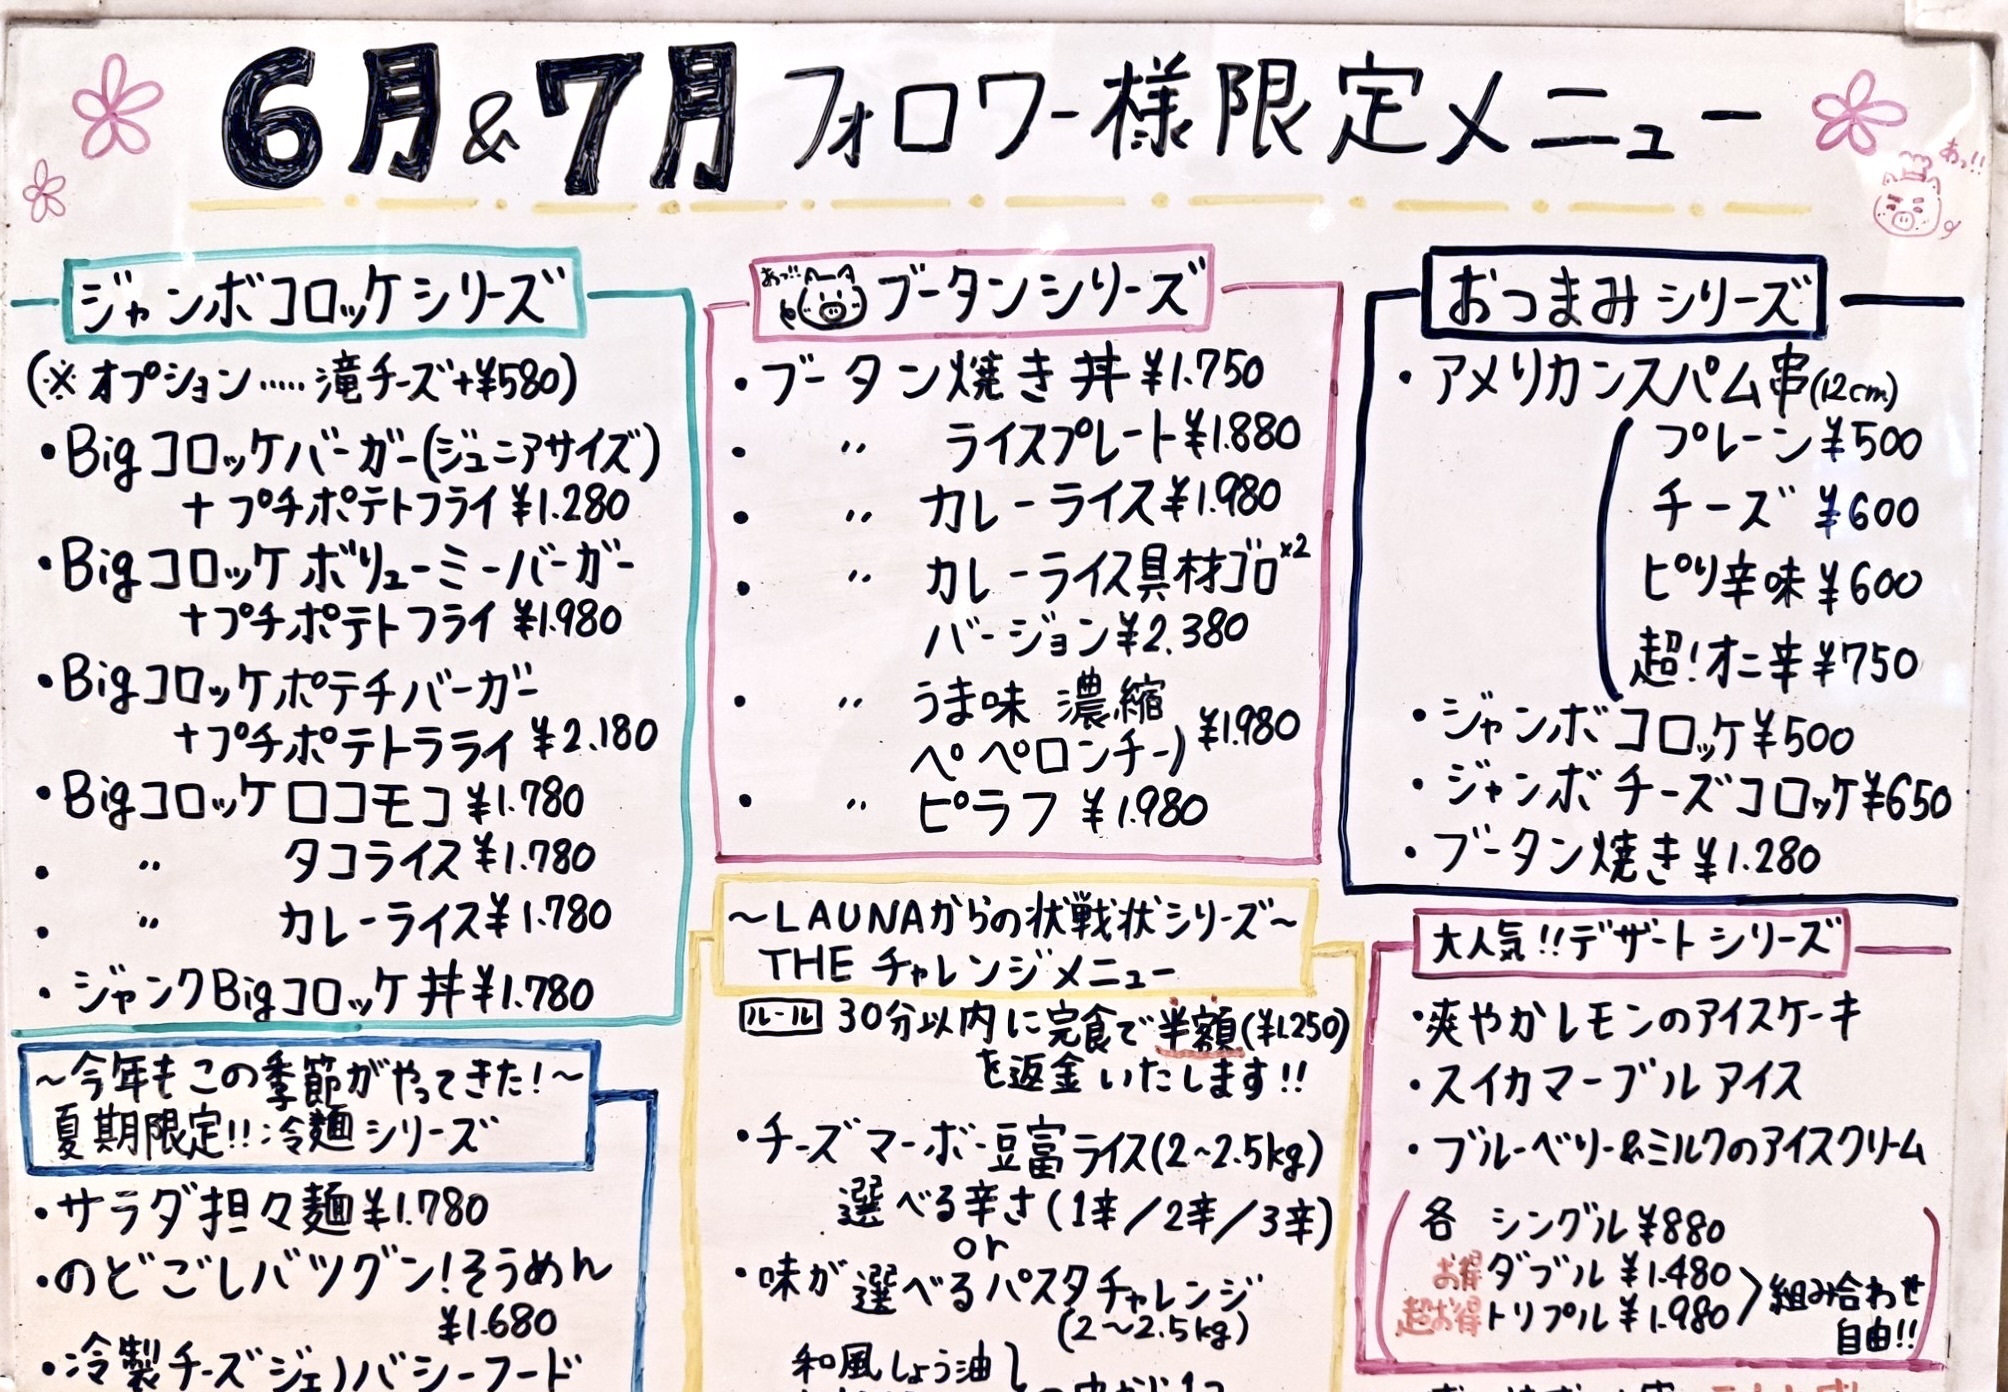 6月&7月フォロワー様限定メニュー
おっ!!
ジャンボコロッケシリーズ
(※オプション.....滝チーズ+¥580)
・Bigコロッケバーガー(ジュニアサイズ)
+プチポテトフライ¥1.280
・Bigコロッケボリューミーバーガー
+プチポテトフライ¥1.980
・Bigコロッケポテチバーガー
+プチポテトラライ¥2.180
・Bigコロッケロコモコ¥1.780
・〃 タコライス¥1.780
・〃 カレーライス¥1.780
・ジャンクBigコロッケ丼¥1.780
〜今年もこの季節がやってきた!〜
夏期限定!!:冷麺シリーズ
・サラダ担々麺¥1.780
・のどごしバツグン!そうめん
¥1.680
・冷製チーズジェノバシーフード
おっ!!
ブータンシリーズ
・ブータン焼き丼¥1.750
・〃 ライスプレート¥1.880
・〃 カレーライス¥1.980
・〃 カレーライス具材ゴロ×2
バージョン¥2.380
・〃 うま味 濃縮
ペペロンチーノ ¥1.980
・〃 ピラフ ¥1.980
〜LAUNAからの状戦状シリーズ〜
THE チャレンジメニュー
ルール 30分以内に完食で半額(¥1.250)
を返金いたします!!
・チーズマーボー豆富ライス(2~2.5kg)
選べる辛さ(1辛/2辛/3辛)
or
・味が選べるパスタチャレンジ
(2〜2.5kg)
和風しょう油
おつまみシリーズ
・アメリカンスパム串(12cm)
プレーン¥500
チーズ ¥600
ピリ辛味¥600
超!オニ辛¥750
・ジャンボコロッケ¥500
・ジャンボチーズコロッケ¥650
・ブータン焼き¥1.280
大人気!!デザートシリーズ
・爽やかレモンのアイスケーキ
・スイカマーブルアイス
・ブルーベリー&ミルクのアイスクリーム
各 シングル¥880
お得ダブル¥1.480
超お得トリプル¥1.980
組み合わせ
自由!!